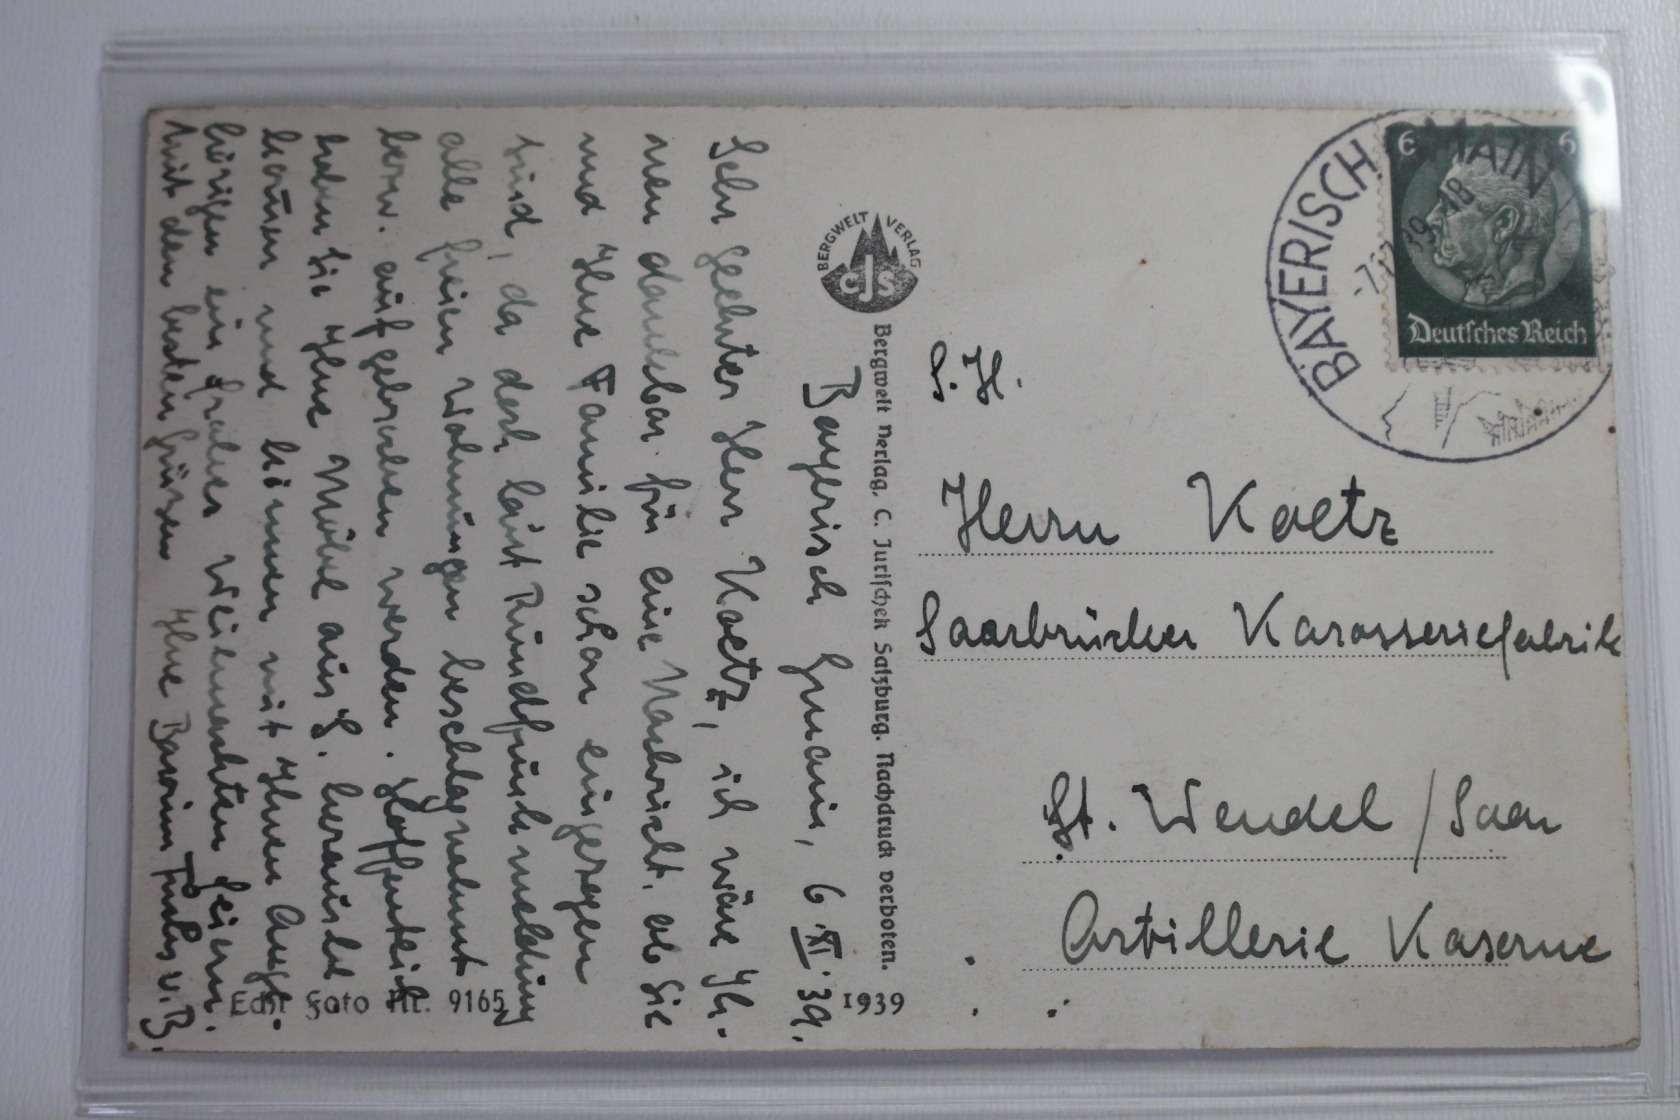 Bayerisch Gmain, 6.XI.39.
Sehr geehrter Herr Koetz, ich wäre Ih-
nen dankbar für eine Nachricht, ob Sie
und Ihre Familie schon eingezogen
sind, da doch laut Rundfunkmeldung
alle freien Wohnungen beschlagnahmt
bezw. aufgehoben werden. Hoffentlich
haben Sie Ihre Möbel aus S. heraus be-
kommen und können mit Ihren Ange-
hörigen ein frohes Weihnachten feiern.
Mit den besten Grüßen Ihre Baronin v. B.
BERGWELT VERLAG
CJS
Bergwelt Verlag, C. Jurischek Salzburg. Nachdruck verboten.
Echt Foto Nr. 9165
1939
BAYERISCH GMAIN
-7.1 39-18
6 6
Deutsches Reich
S.H.
Herrn Koetz
Saarbrücker Karosseriefabrik
St. Wendel / Saar
Artillerie Kaserne